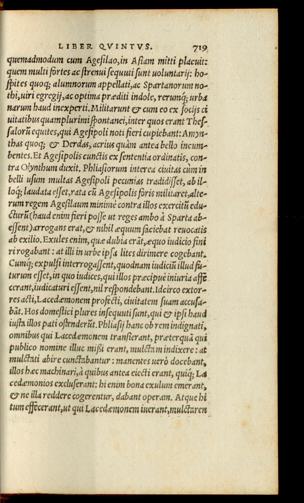 LIBER QVINTVS. 719
quemadmodum cum Agesilao, in Asiam mitti placuit:
quem multi fortes ac strenui sequuti sunt uoluntarij: ho-
spites quoq; alumnorum appellati, ac Spartanorum no-
thi, uiri egregij, ac optima præditi indole, rerumq́; urba
narum haud inexperti. Militarunt & cum eo ex socijs ci
uitatibus quamplurimi spontanei, inter quos erant Thes-
salorũ equites, qui Agesipoli noti fieri cupiebant: Amyn-
thas quoq; & Derdas, acrius quàm antea bello incum-
bentes. Et Agesipolis cunctis ex sententia ordinatis, con-
tra Olynthum duxit. Phliasiorum interea ciuitas cùm in
belli usum multas Agesipoli pecunias tradidisset, ab il-
loq; laudata esset, rata eū Agesipolis foris militaret, alte-
rum regem Agesilaum minimè contra illos exercitū edu-
cturū (haud enim fieri posse ut reges ambo à Sparta ab-
essent) arrogans erat, & nihil æquum faciebat reuocatis
ab exilio. Exules enim, quæ dubia erāt, æquo iudicio fini
ri rogabant: at illi in urbe ipsa lites dirimere cogebant.
Cumq́; expulsi interrogassent, quodnam iudiciū illud fu-
turum esset, in quo iudices, qui illos præcipue iniuria affe
cerant, iudicaturi essent, nil respondebant. Idcirco extor-
res acti, Lacedæmonem profecti, ciuitatem suam accusa-
bāt. Hos domestici plures insequuti sunt, qui & ipsi haud
iusta illos pati ostenderūt. Phliasij hanc ob rem indignati,
omnibus qui Lacedæmonem transierant, præterquā qui
publico nomine illuc missi erant, mulctam indixere: at
mulctati abire cunctabantur: manentes uerò docebant,
illos hæc machinari, à quibus antea eiecti erant, quiq; La
cedæmonios excluserant: hi enim bona exulum emerant,
& ne illa reddere cogerentur, dabant operam. Atque hi
tum effecerant, ut qui Lacedæmonem iuerant, mulctaren